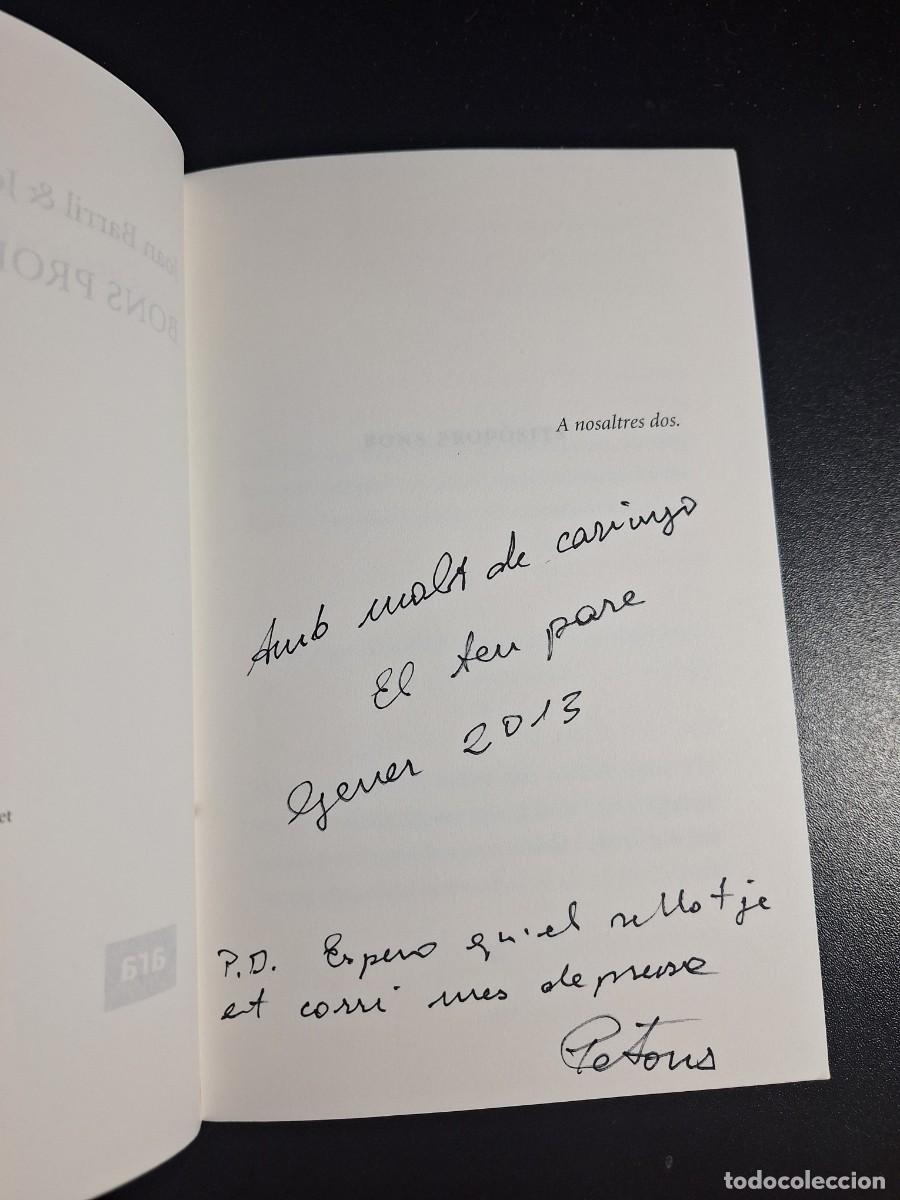 Joan Barril & J
BONS PROP
et
ara
A nosaltres dos.
BONS PROPÒSITS
Amb molt de carinyo
El teu pare
Gener 2013
P.D. Espero qu'el rellotje
et corri mes depresa
Petons
todocoleccion